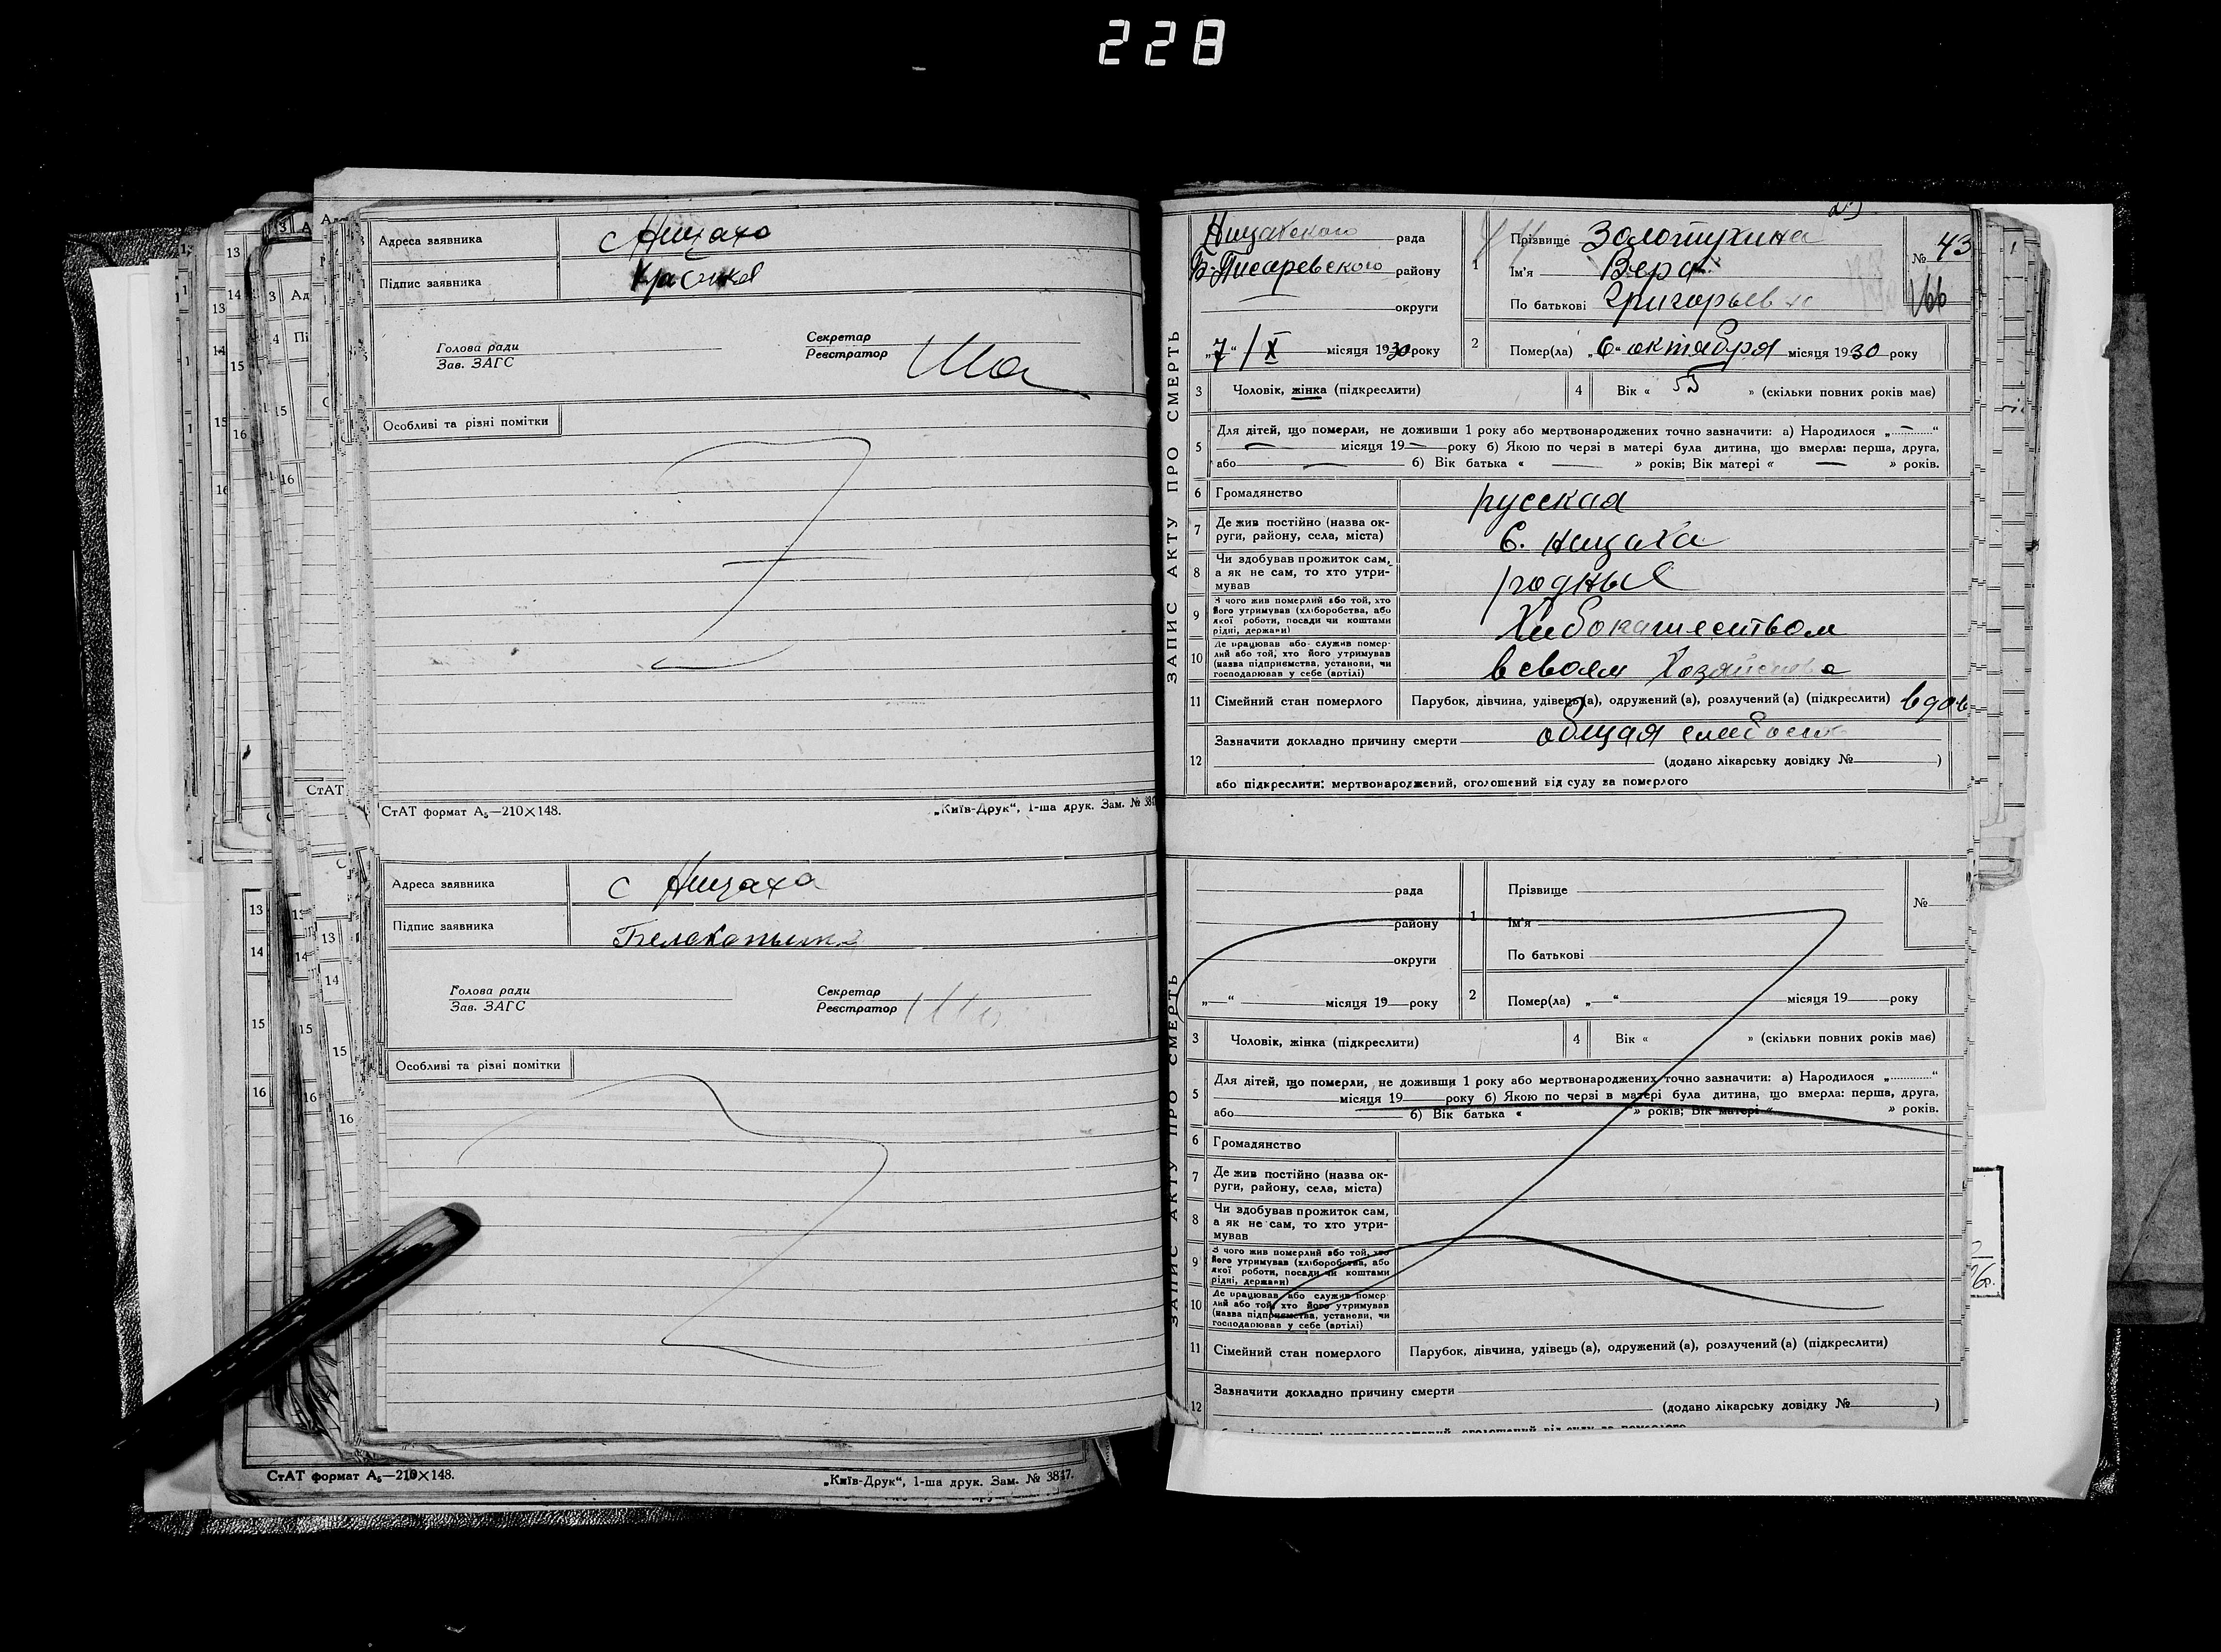 228
Адреса заявника с Ницаха
Підпис заявника
Голова ради
Зав. ЗАГС
Секретар
Реєстратор
Особливі та різні помітки
СтАТ формат А₅—210×148.
„Київ-Друк“, 1-ша друк. Зам. №
Адреса заявника с Ницаха
Підпис заявника
Голова ради
Зав. ЗАГС
Секретар
Реєстратор
Особливі та різні помітки
СтАТ формат А₅—210×148.
„Київ-Друк“, 1-ша друк. Зам. № 3847.
ЗАПИС АКТУ ПРО СМЕРТЬ
Ницахского рада
Б-Писаревского району
округи
„7“ / X місяця 1930 року
1 Прізвище Золотухина
Ім'я Вера
По батькові Григорьевн
№ 43
166
2 Помер(ла) „6“ октября місяця 1930 року
3 Чоловік, жінка (підкреслити)
4 Вік « 55 » (скільки повних років має)
5 Для дітей, що померли, не доживши 1 року або мертвонароджених точно зазначити: а) Народилося „ “
місяця 19 — року б) Якою по черзі в матері була дитина, що вмерла: перша, друга,
або — б) Вік батька « — » років; Вік матері « — » років.
6 Громадянство русская
7 Де жив постійно (назва ок-
руги, району, села, міста) С. Ницаха
8 Чи здобував прожиток сам,
а як не сам, то хто утри-
мував родные
9 З чого жив померлий або той, хто
його утримував (хліборобства, або
якої роботи, посади чи коштами
рідні, держави)
10 Де працював або служив помер-
лий або той, хто його утримував
(назва підприємства, установи, чи
господарював у себе (артілі) в своем
11 Сімейний стан померлого Парубок, дівчина, удівець(а), одружений (а), розлучений (а) (підкреслити) вдов
12 Зазначити докладно причину смерти общая слабость
(додано лікарську довідку № )
або підкреслити: мертвонароджений, оголошений від суду за померлого
ЗАПИС АКТУ ПРО СМЕРТЬ
рада
району
округи
„ “ місяця 19 року
1 Прізвище
Ім'я
По батькові
№
2 Помер(ла) „ “ місяця 19 року
3 Чоловік, жінка (підкреслити)
4 Вік « » (скільки повних років має)
5 Для дітей, що померли, не доживши 1 року або мертвонароджених точно зазначити: а) Народилося „ “
місяця 19 року б) Якою по черзі в матері була дитина, що вмерла: перша, друга,
або б) Вік батька « » років; Вік матері « » років.
6 Громадянство
7 Де жив постійно (назва ок-
руги, району, села, міста)
8 Чи здобував прожиток сам,
а як не сам, то хто утри-
мував
9 З чого жив померлий або той, хто
його утримував (хліборобства, або
якої роботи, посади чи коштами
рідні, держави)
10 Де працював або служив помер-
лий або той, хто його утримував
(назва підприємства, установи, чи
господарював у себе (артілі)
11 Сімейний стан померлого Парубок, дівчина, удівець (а), одружений (а), розлучений (а) (підкреслити)
12 Зазначити докладно причину смерти
(додано лікарську довідку № )